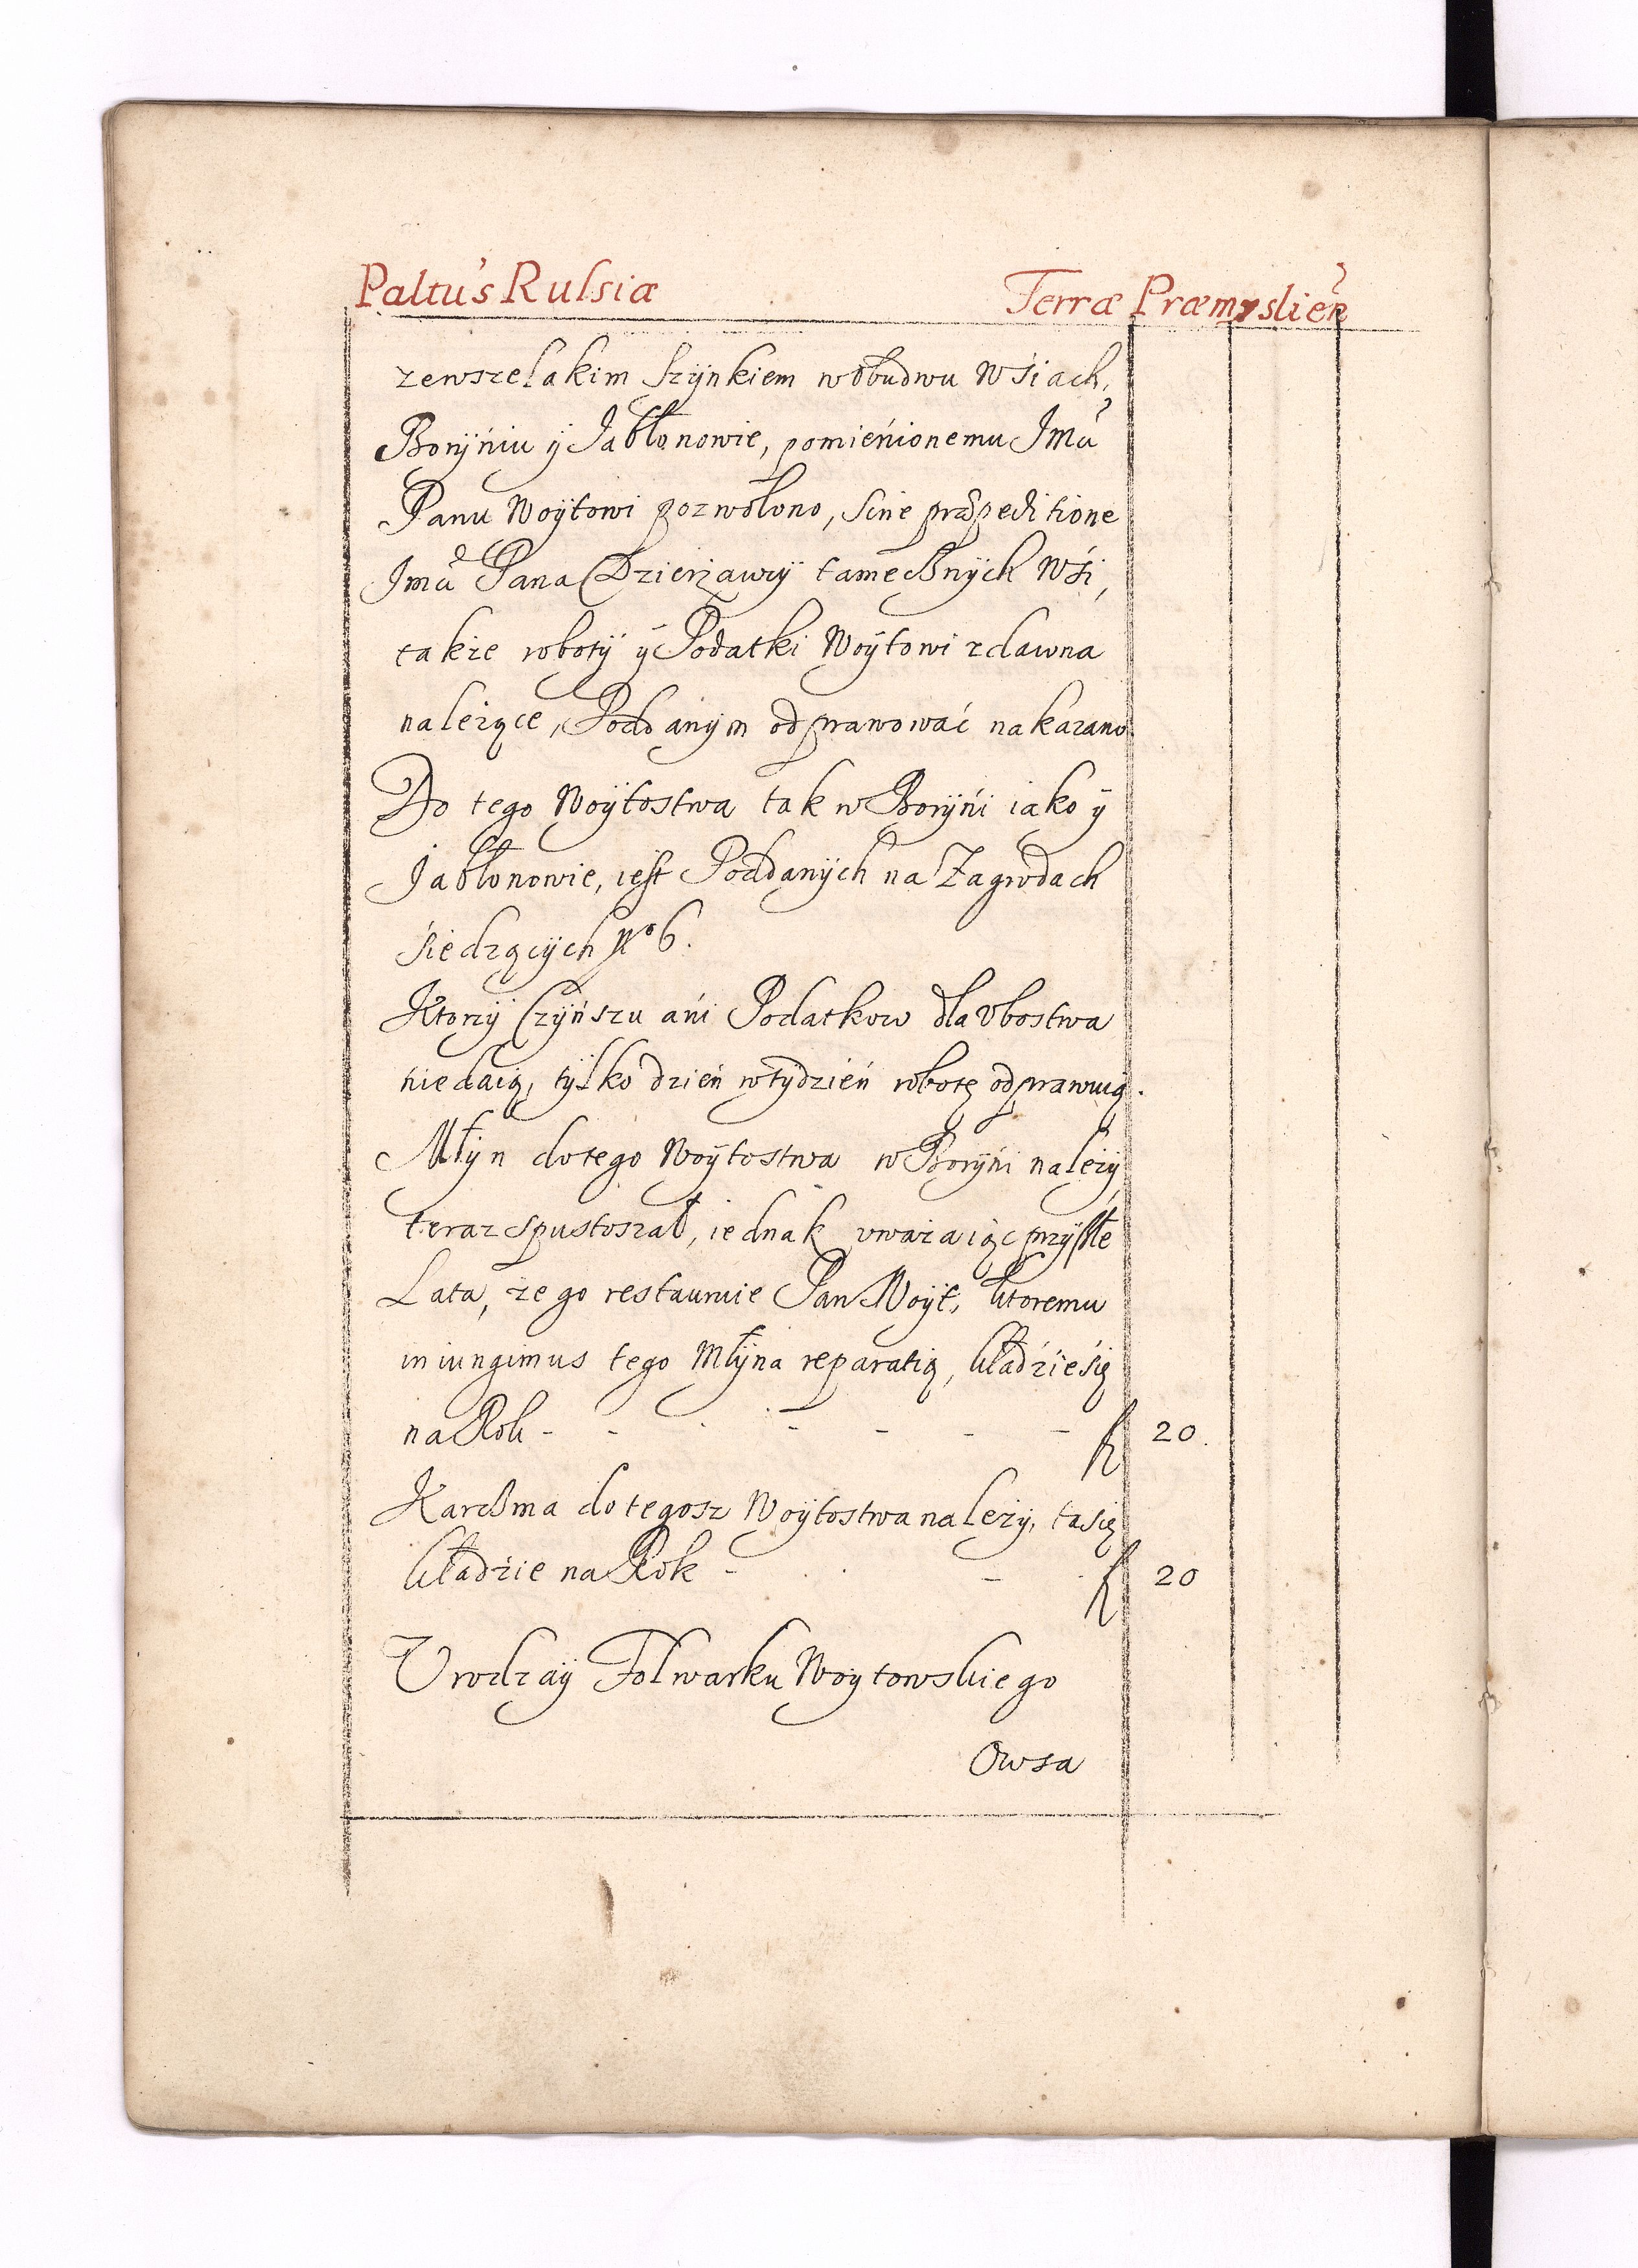 Paltus Russiæ Terræ Præmysliēn
zewszelakim szÿnkiem wobudwu wśiach,
Borÿniu ÿ Jabłonowie, pomieńionemu Jmū
Panu Woÿtowi pozwolono, sine præpeditione
Jmā Pana Dzierżawcÿ tamecznÿch Wśi,
takze robotÿ ÿ Podatki Woÿtowi zdawna
należące, Poddanÿm odprawować nakazano
Do tego Woÿtostwa tak w Borÿńi iako ÿ
Jabłonowie, iest Poddanÿch na Zagrodach
śiedzącÿch No 6.
Ktorzÿ Czÿńszu ańi Podatkow dla vbostwa
niedaią, tÿlko dzień wtÿdzień robotę odprawuią.
Młÿn do tego Woÿtostwa w Borÿńi należÿ
teraz spustoszał, iednak vważaiąc przÿszłe
Lata, że go restauruie Pan Woÿt, ktoremu
iniungimus tego Młÿna reparatią, kładźie śię
na Rok - - - - - - f 20.
Karczma do tegosz Woÿtostwa należy, ta się
kładźie na Rok - - f 20
Vrodzaÿ Folwarku Woÿtowskiego
Owsa